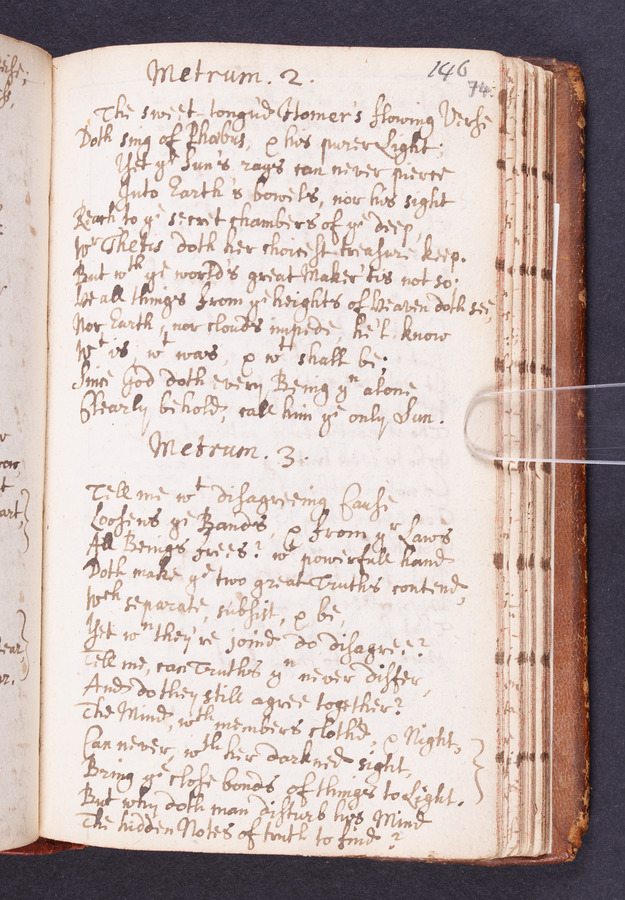 146
74.
Metrum. 2.
The sweet-tongu'd Homer's flowing Verse
Doth sing of Phœbus, & his purer Light;
Yet yᵉ Sun's rays can never pierce
Into Earth's bowels, nor his sight
Reach to yᵉ secret chambers of yᵉ deep,
Wʳ Thetis doth her choicest treasure keep.
But wᵗʰ yᵉ world's great Maker 'tis not so;
He all things from yᵉ heights of Heaven doth see,
Nor Earth, nor clouds impede, he'l know
Wᵗ is, wᵗ was & wᵗ shall be;
Since God doth every Being yⁿ alone
Clearly behold, call him yᵉ only Sun.
Metrum. 3.
Tell me wᵗ disagreeing Cause
Loosens yᵉ Bands, & from yʳ Laws
All Beings frees? wᵗ powerfull hand
Doth make yᵉ two great Truths contend,
Wᶜʰ separate, subsist, & be,
Yet wⁿ they're joind do disagree?
Tell me, can Truths yⁿ never differ,
And do they still agree together?
The Mind, wᵗʰ members cloth'd, & Night,
Can never, wᵗʰ her darkned sight,
Bring yᵉ close bonds of things to Light.
But why doth man disturb his Mind
The hidden Notes of truth to find?